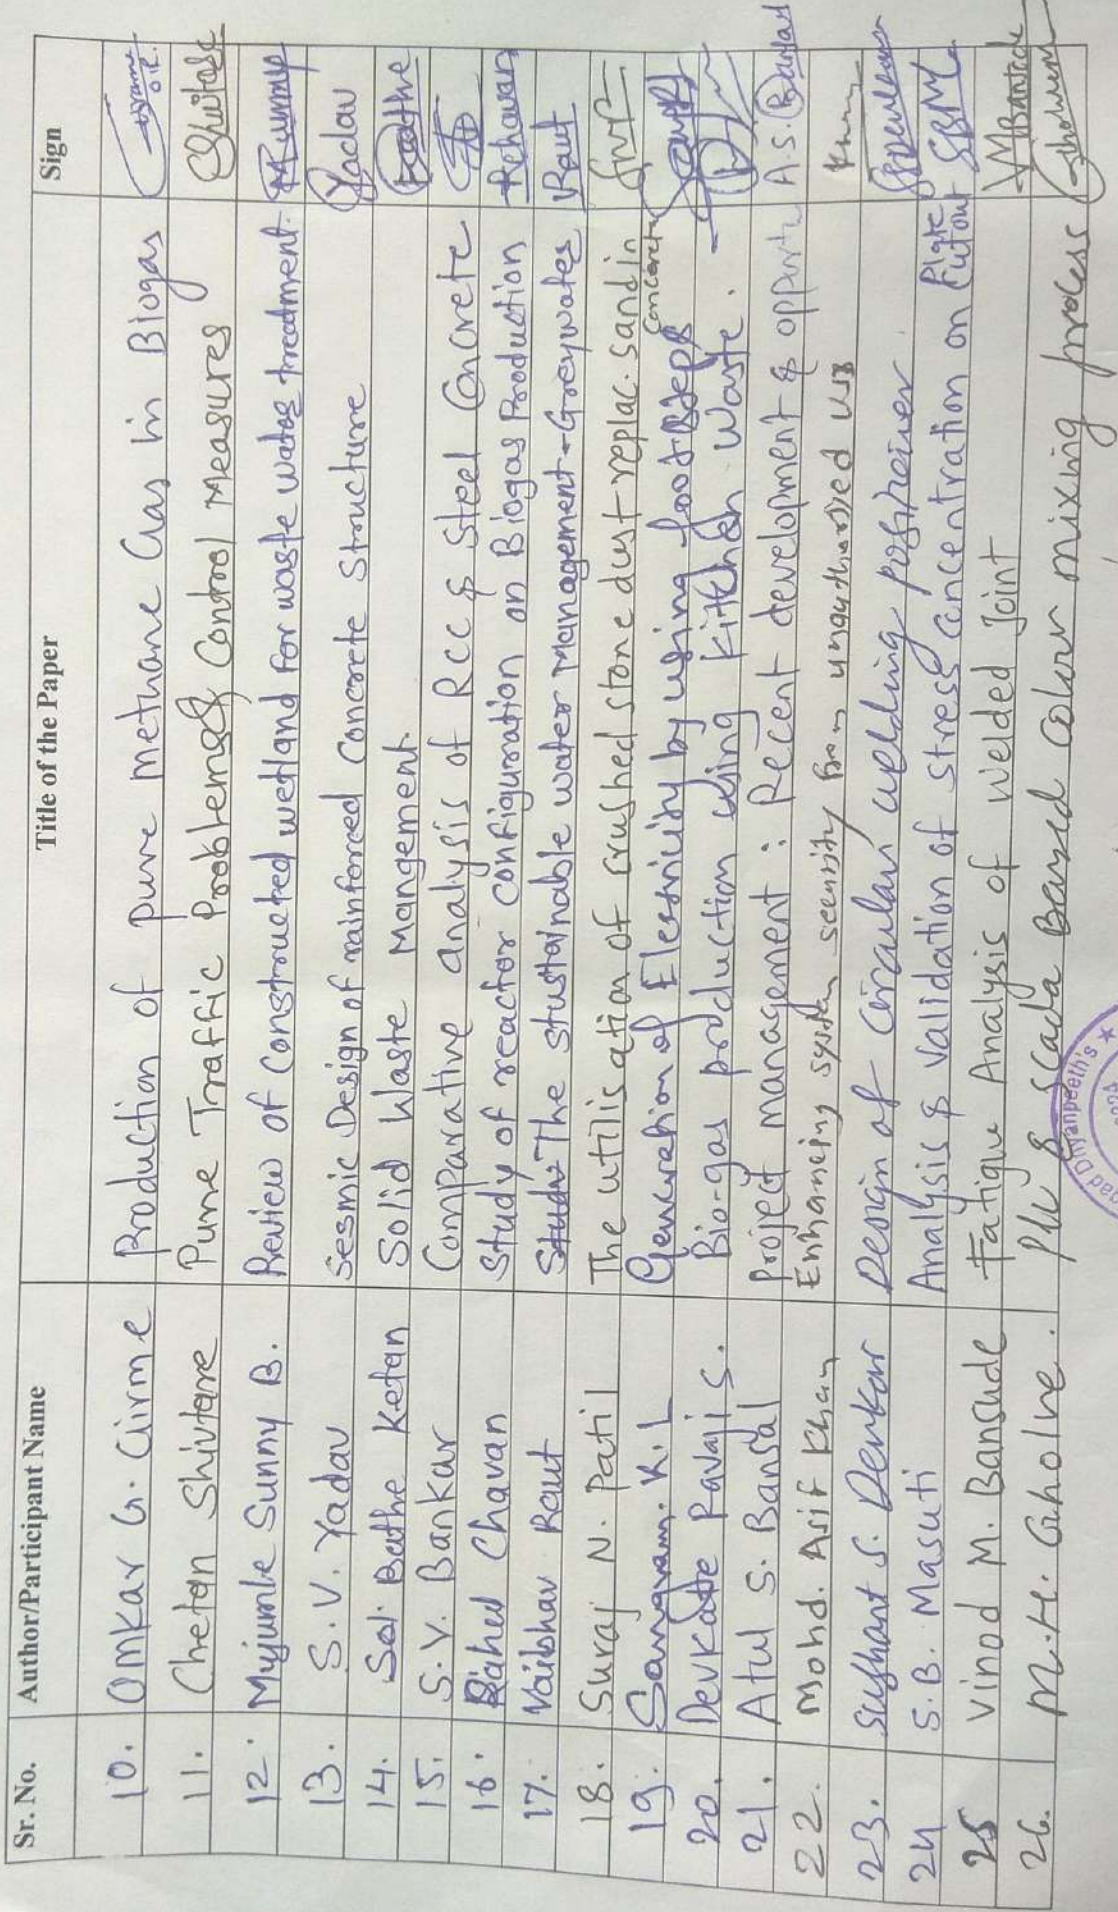 Sr. No. Author/Participant Name Title of the Paper Sign
10. Omkar G. Girme Production of pure methane Gas in Biogas
11. Chetan Shivtare Pune Traffic Problems & Control Measures Shivtare
12. Mujumle Sunny B. Review of Constructed wetland for waste water treatment.
13. S. V. Yadav Sesmic Design of rainforced Concrete Structure Yadav
14. Sal. Bathe Ketan Solid Waste Mangement
15. S. V. Bankar Comparative analysis of RCC & Steel Concrete
16. Rahul Chavan Study of reactor configuration on Biogas Production Rchavan
17. Vaibhav Raut The sustainable water Management-Greywater Raut
18. Suraj N. Patil The utilisation of crushed stone dust replac. sand in concrete
19. Sangram. K. L Generation of Electricity by using foot steps
20. Devkate Ravaji S. Bio-gas production using kitchen waste.
21. Atul S. Bansal Project management : Recent development & opportu A.S. Bansal
22. Mohd. Asif Khan Enhancing system security from unauthorized us Khan
23. Sushant S. Devkar Design of circular welding positioner
24 S. B. Masuti Analysis & Validation of stress concentration on Plate Cutout SBM
25 Vinod M. Bansude Fatigue Analysis of welded Joint
26. M. H. Gholve. PLC & scada Based color mixing process
Dnyanpeeth's